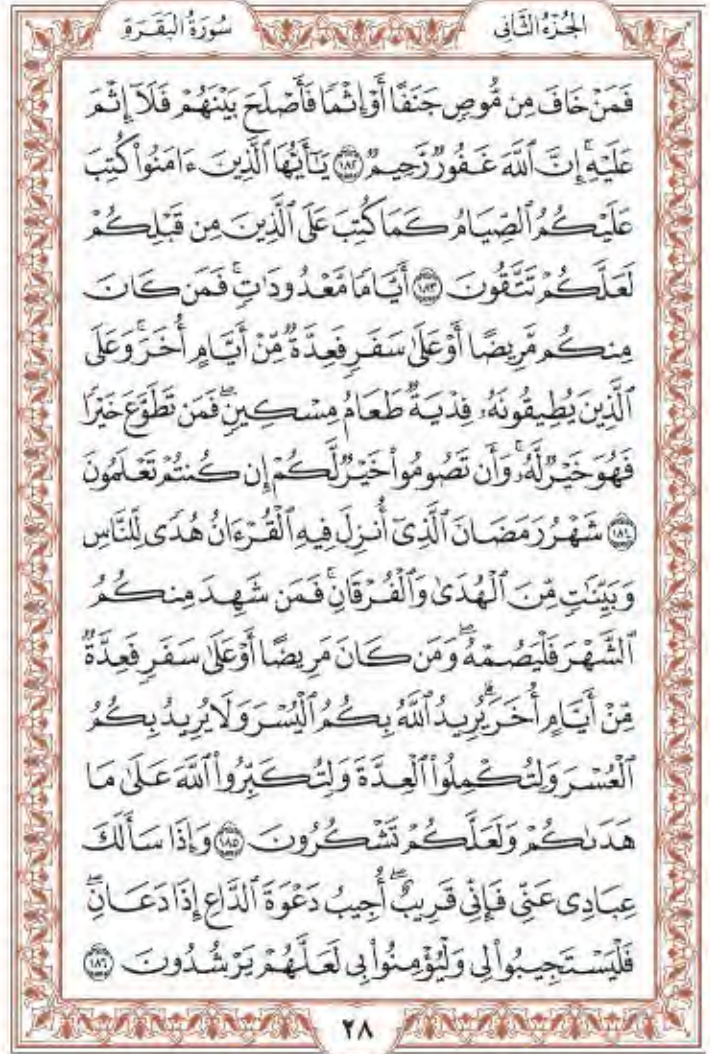 الجُزْءُ الثَّانِي
سُورَةُ البَقَرَةِ
فَمَنْ خَافَ مِن مُّوصٍ جَنَفًا أَوْ إِثْمًا فَأَصْلَحَ بَيْنَهُمْ فَلَآ إِثْمَ
عَلَيْهِۚ إِنَّ ٱللَّهَ غَفُورٞ رَّحِيمٞ ١٨٢ يَـٰٓأَيُّهَا ٱلَّذِينَ ءَامَنُواْ كُتِبَ
عَلَيْكُمُ ٱلصِّيَامُ كَمَا كُتِبَ عَلَى ٱلَّذِينَ مِن قَبْلِكُمْ
لَعَلَّكُمْ تَتَّقُونَ ١٨٣ أَيَّامٗا مَّعْدُودَٰتٖۚ فَمَن كَانَ
مِنكُم مَّرِيضًا أَوْ عَلَىٰ سَفَرٖ فَعِدَّةٞ مِّنْ أَيَّامٍ أُخَرَۚ وَعَلَى
ٱلَّذِينَ يُطِيقُونَهُۥ فِدْيَةٞ طَعَامُ مِسْكِينٖۖ فَمَن تَطَوَّعَ خَيْرٗا
فَهُوَ خَيْرٞ لَّهُۥۚ وَأَن تَصُومُواْ خَيْرٞ لَّكُمْ إِن كُنتُمْ تَعْلَمُونَ
١٨٤ شَهْرُ رَمَضَانَ ٱلَّذِيٓ أُنزِلَ فِيهِ ٱلْقُرْءَانُ هُدٗى لِّلنَّاسِ
وَبَيِّنَٰتٖ مِّنَ ٱلْهُدَىٰ وَٱلْفُرْقَانِۚ فَمَن شَهِدَ مِنكُمُ
ٱلشَّهْرَ فَلْيَصُمْهُۖ وَمَن كَانَ مَرِيضًا أَوْ عَلَىٰ سَفَرٖ فَعِدَّةٞ
مِّنْ أَيَّامٍ أُخَرَۗ يُرِيدُ ٱللَّهُ بِكُمُ ٱلْيُسْرَ وَلَا يُرِيدُ بِكُمُ
ٱلْعُسْرَ وَلِتُكْمِلُواْ ٱلْعِدَّةَ وَلِتُكَبِّرُواْ ٱللَّهَ عَلَىٰ مَا
هَدَىٰكُمْ وَلَعَلَّكُمْ تَشْكُرُونَ ١٨٥ وَإِذَا سَأَلَكَ
عِبَادِي عَنِّي فَإِنِّي قَرِيبٌۖ أُجِيبُ دَعْوَةَ ٱلدَّاعِ إِذَا دَعَانِۖ
فَلْيَسْتَجِيبُواْ لِي وَلْيُؤْمِنُواْ بِي لَعَلَّهُمْ يَرْشُدُونَ ١٨٦
٢٨